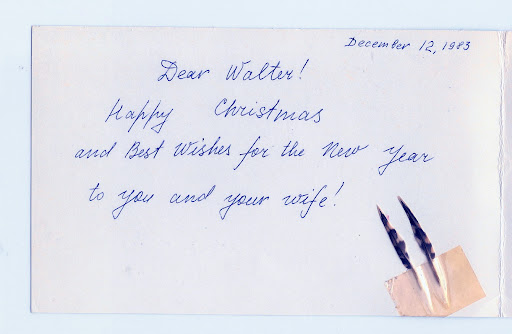 December 12, 1983
Dear Walter!
Happy Christmas
and Best Wishes for the New Year
to you and your wife!